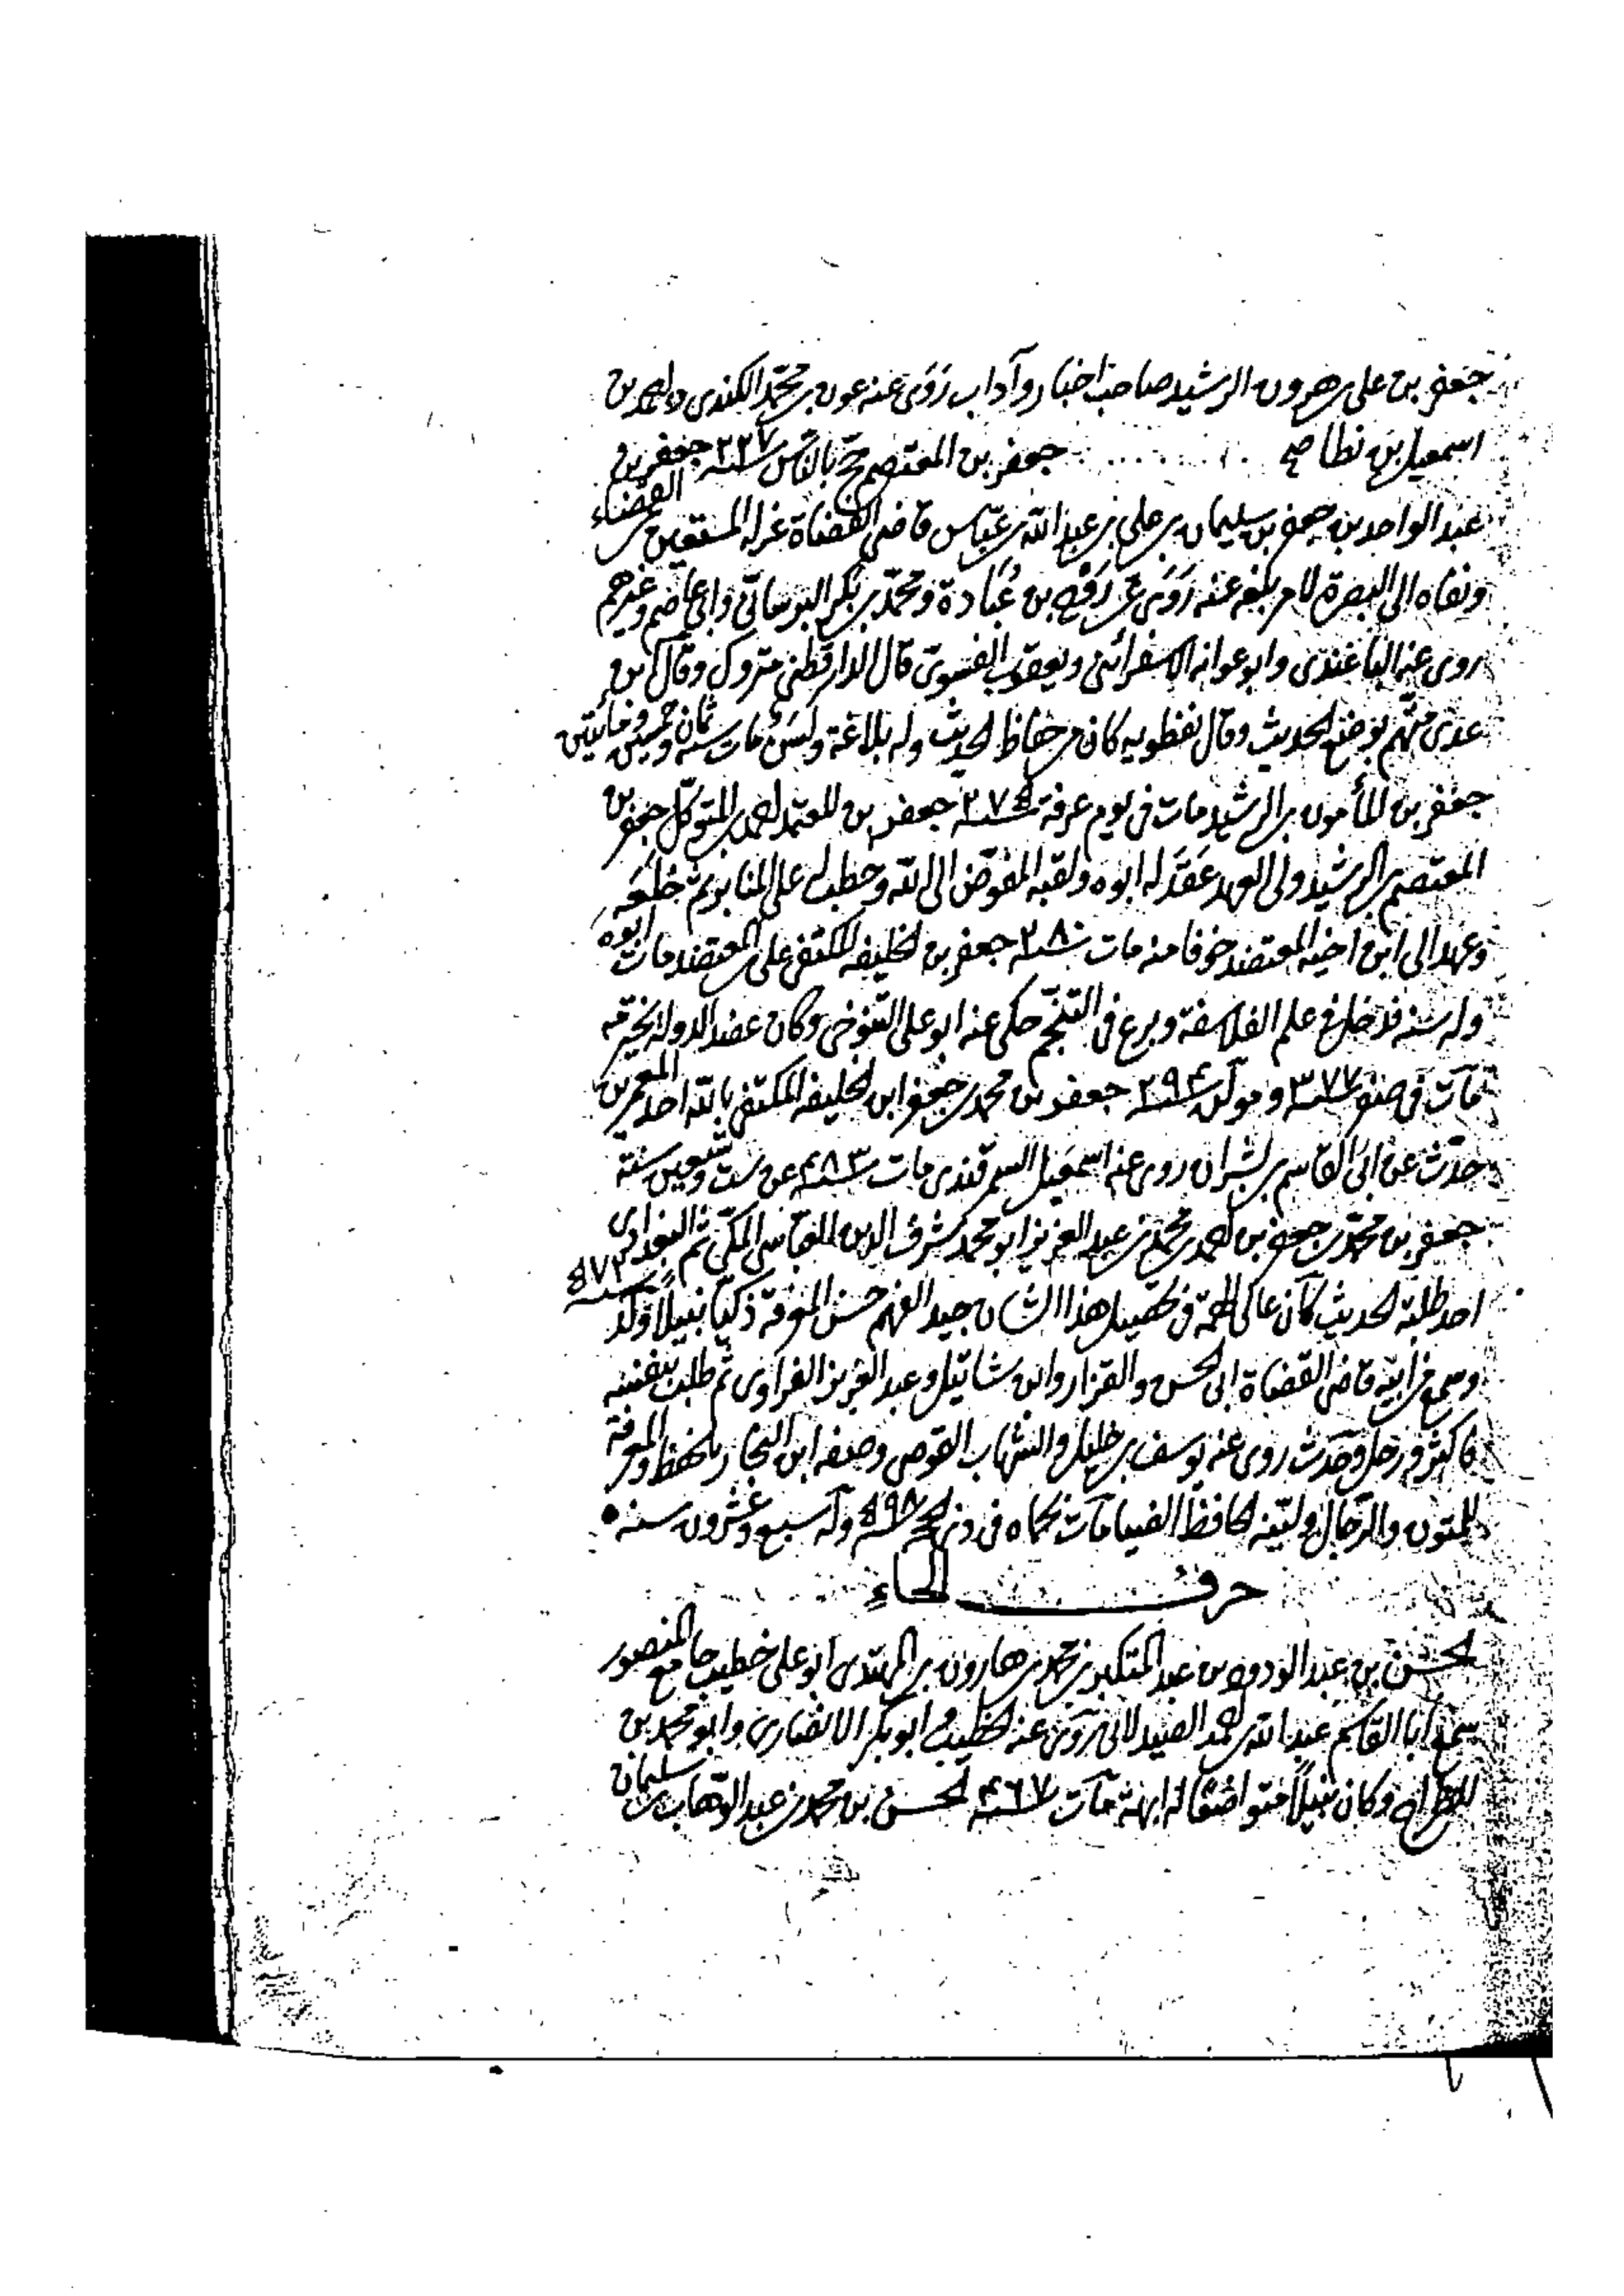 جعفر بن علی بن هرون الرشید صاحب اخبار وآداب رَوَى عنه عون بن محمّد الکندی واحمد بن
اسمعیل بن جعفر بن المعتصم حجّ بالنّاس سنة ۲۲۷ جعفر بن
عبد الواحد بن جعفر بن سلیمان بن علی بن عبد الله بن عبّاس قاضی القضاة عزله المستعین عن القضاء
ونفاه الی البصرة لامر بلغه عنه رَوَى عن رَوْح بن عُبَادة ومحمّد بن بکر البرسانّی وابی عاصم وغیرهم
روی عنه الباغندی وابو عوانه الاسفرائنی ویعقوب الفسوی قال الدارقطنی متروک وقال ابن
عدی متّهم بوضع الحدیث وقال نفطویه کان من حفاظ الحدیث وله بلاغة ولسن مات سنة ثمان وخمسین ومائتین
جعفر بن المأمون بن الرشید مات فی یوم عرفة سنة جعفر بن المعتمد احمد بن المتوکّل جعفر بن
المعتصم بن الرشید ولی العهد عَقَدَ له ابوه ولقبه المفوّض الی الله وخطب له علی المنابر ثمّ خلعه ابوه
وعهد الی ابن اخیه المعتضد خوفا منه مات سنة ۲۸۰ جعفر بن الخلیفه المکتفی علی بن المعتضد مات
وله سنة فدخل فی علم الفلاسفة وبرع فی التنجّم حکی عنه ابو علی التنوخی وکان عضد الدولة یحترمه
مات فی صفر سنة ۳۷۷ ومولده سنة ۲۹۴ جعفر بن محمد بن جعفر ابن الخلیفه المکتفی بالله احد المعمرین
حدّث عن ابی القاسم بن بشران روی عنه اسمعیل السمرقندی مات سنة ۴۸۳ عن ست وتسعین سنة
جعفر بن محمّد بن جعفر بن احمد بن محمّد بن عبد العزیز ابو محمد شرف الدین العباسی المکّی ثمّ البغدادی
احد طلبة الحدیث کان عالی الهمّة فی تحصیل هذا الشان جید الفهم حسن المعرفة ذکیّا نبیلًا ولد سنة ۵۷۲
وسمع من ابیه قاضی القضاة ابی الحسن والقزاز وابن شاتیل وعبد العزیز الفراوی ثم طلب بنفسه
فاکثر ورحل وحدّث روی عنه یوسف بن خلیل والشهاب القوصی وصفه ابن النجّار بالحفظ والمعرفة
للمتون والرّجال ولیّنه الحافظ الضیا مات بحماه فی ذی الحجّة سنة ۵۹۸ وله سبع وعشرون سنه
حرف الحاءِ
الحسن بن عبد الودود بن عبد المتکبر بن محمد بن هارون بن المهتدی ابو علی خطیب جامع المنصور
سمع ابا القاسم عبد الله بن احمد الصیدلانی رَوَى عنه الخطیب وابو بکر الانصاری وابو محمد بن
الطراح وکان نبیلًا متواضعًا له ابهة مات سنة ۴٦۷ الحسن بن محمد بن عبد الوّهاب بن سلیمان